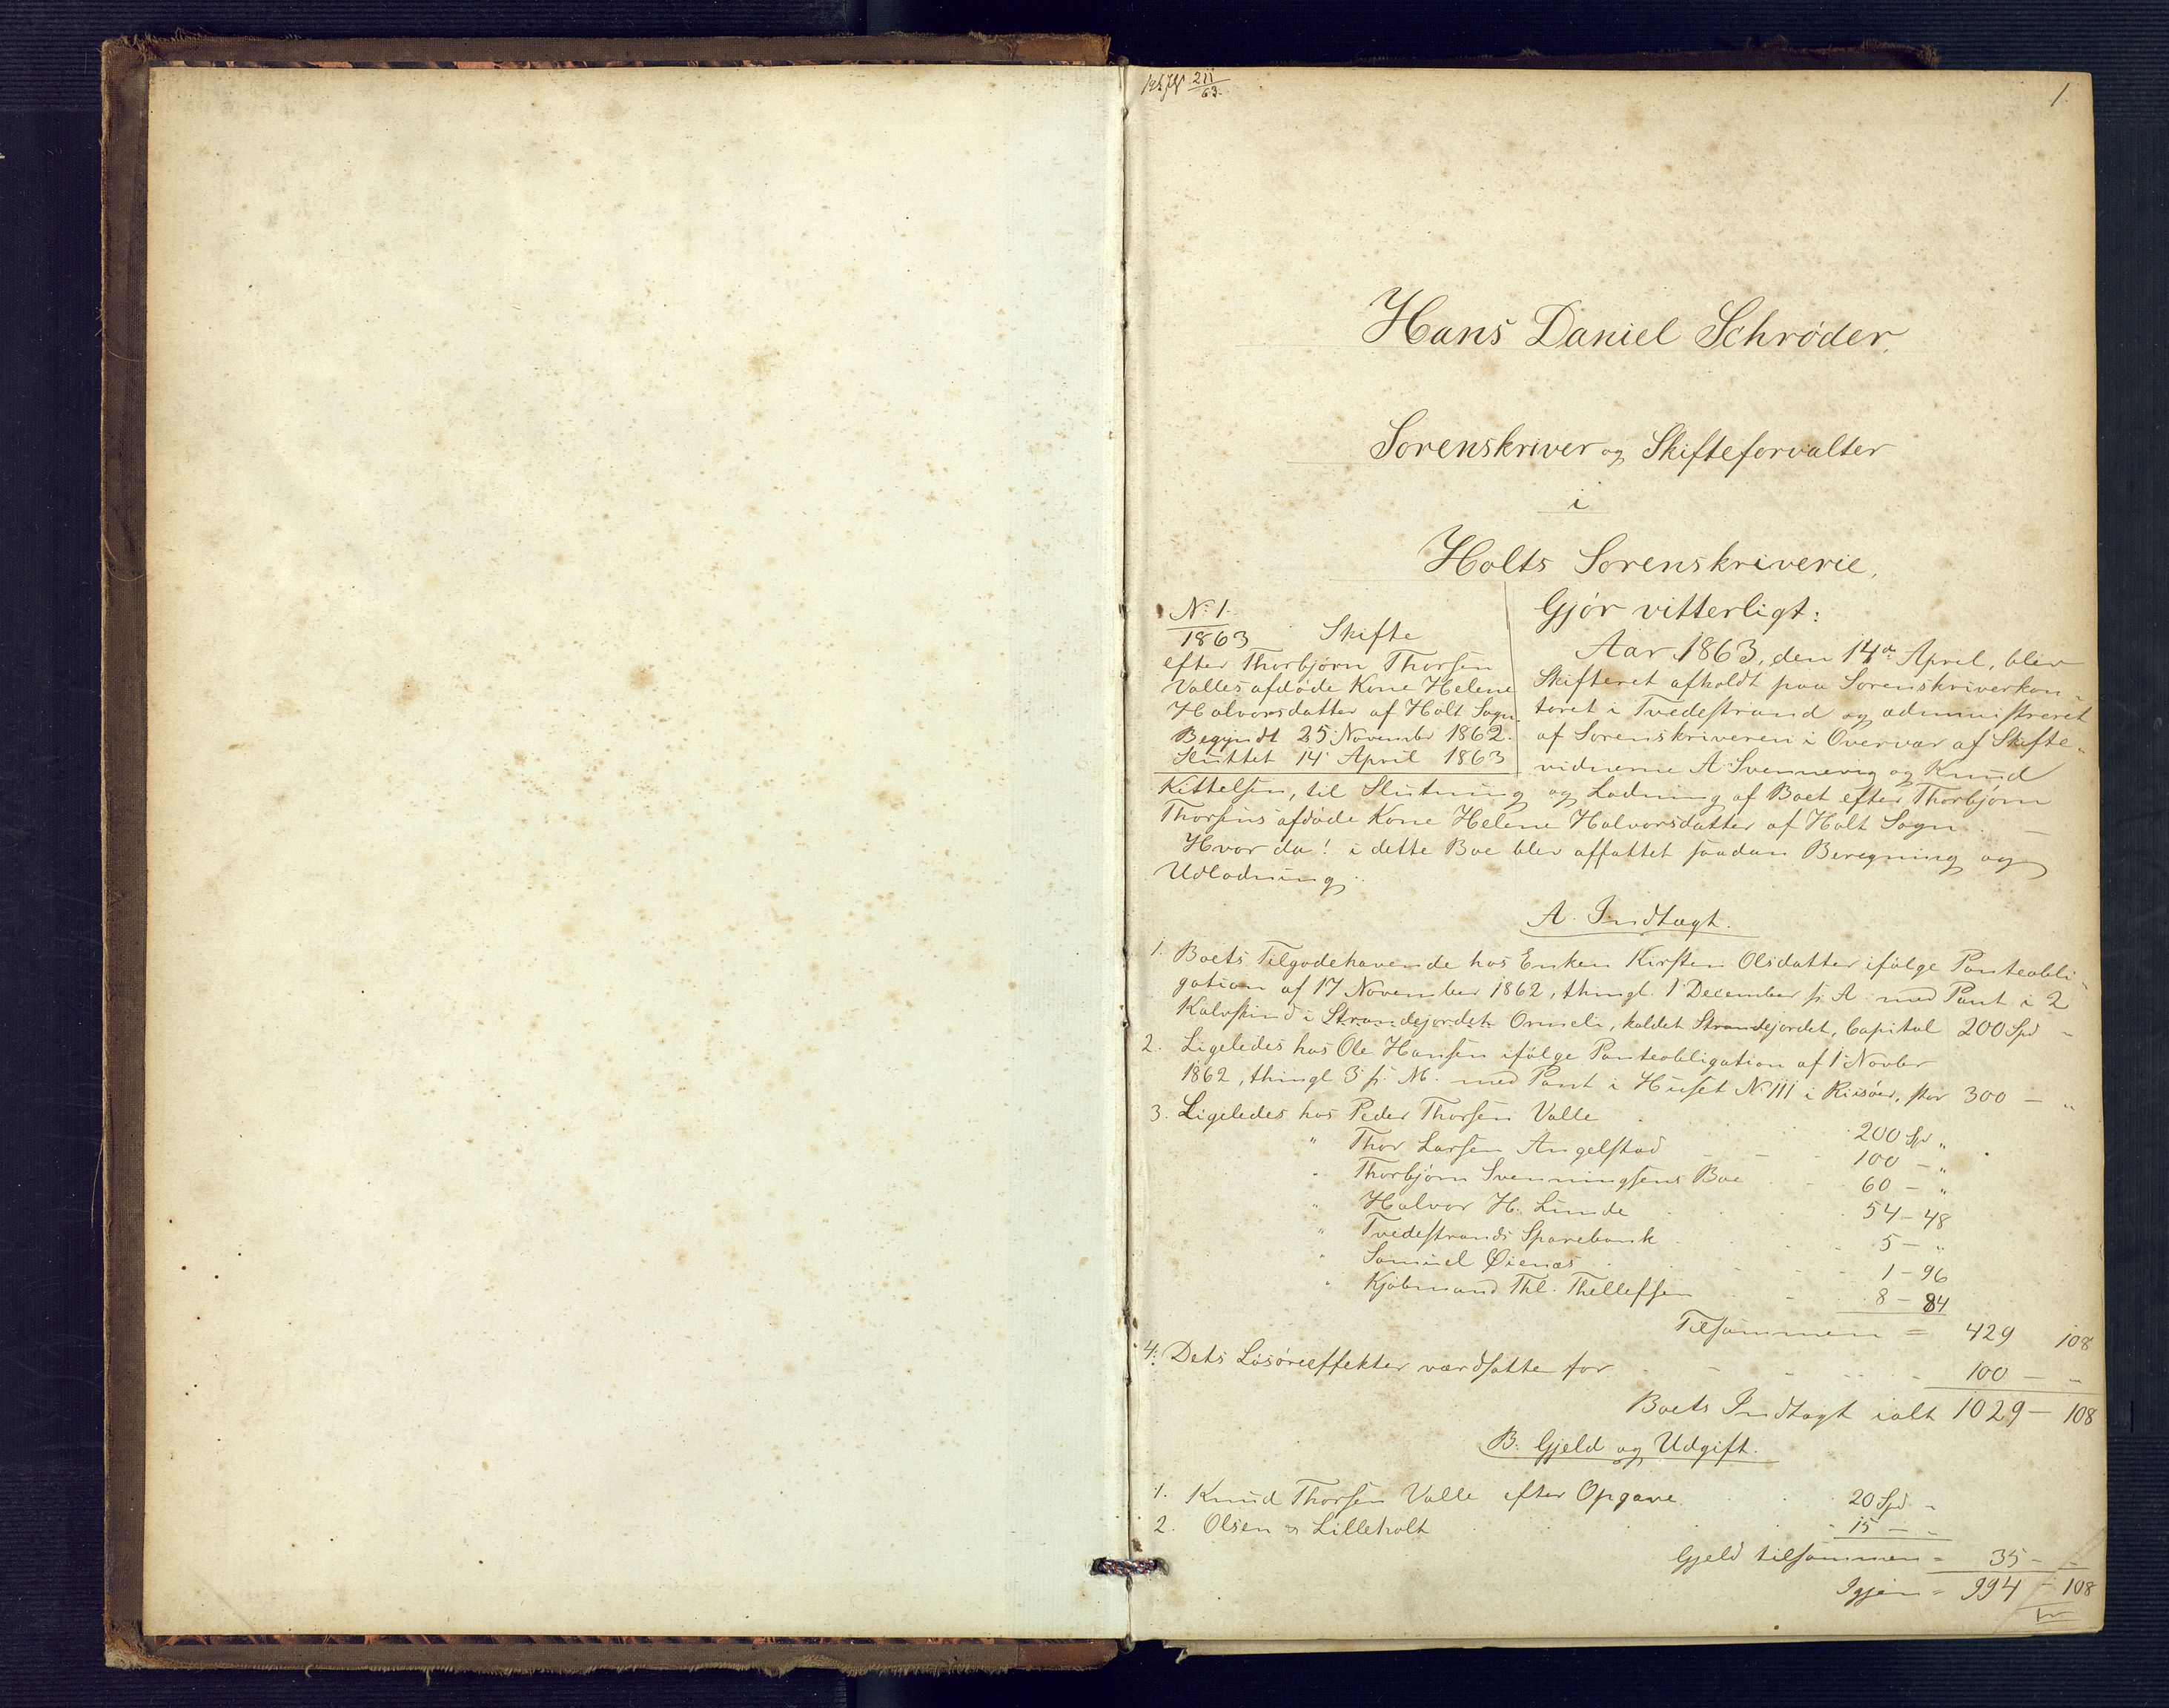 211
63.
1.
Hans Daniel Schrøder,
Sorenskriver og Skifteforvalter
i
Holts Sorenskriverie,
Gjør vitterligt:
No: 1.
1863 Skifte
efter Thorbjørn Thorsen
Valles afdøde Kone Helene
Halvorsdatter af Holt Sogn.
Begyndt 25 November 1862.
Sluttet 14 April 1863
Aar 1863, den 14de April, blev
Skifteret afholdt paa Sorenskriverkon-
toret i Tvedestrand og administreret
af Sorenskriveren i Overvær af Skifte-
vidnerne A Svennevig og Knud
Kittelsen, til Slutning og Lodning af Boet efter Thorbjørn
Thorsens afdøde Kone Helene Halvorsdatter af Holt Sogn. —
Hvor da! i dette Boe blev affattet saadan Beregning og
Udlodning:
A. Indtægt.
1. Boets Tilgodehavende hos Enken Kirsten Olsdatter ifølge Panteobli-
gation af 17 November 1862, thingl. 1 December s. A. med Pant i 2
Kalvskind i Strandejordet Ormeli, kaldet Strandejordet, Capital 200 Spd "
2. Ligeledes hos Ole Hansen ifølge Panteobligation af 1 Novbr
1862, thingl 3 s. M. med Pant i Huset No 111 i Riisøer, stor 300 — "
3. Ligeledes hos Peder Thorsen Valle 200 Spd "
" Thor Larsen Angelstad 100 — "
" Thorbjørn Svenningsens Boe 60 — "
" Halvor H. Lunde 54 — 48
" Tvedestrands Sparebank 5 — "
" Samuel Øienæs 1 — 96
" Kjøbmand Thl. Thellefsen 8 — 84
Tilsammen = 429 108
4. Dets Løsøreeffekter værdsatte for 100 — "
Boets Indtægt ialt 1029 — 108
B. Gjeld og Udgift.
1. Knud Thorsen Valle efter Opgave 20 Spd "
2. Olsen & Lilleholt 15 — "
Gjeld tilsammen = 35 — "
Igjen = 994 — 108